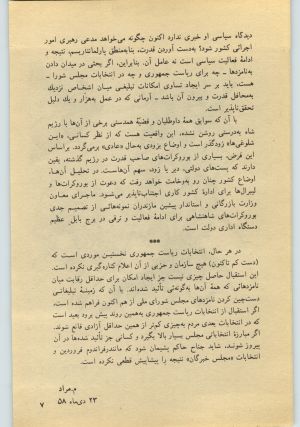 دیدگاه سیاسی او خبری ندارد اکنون چگونه می‌خواهد مدعی رهبری امور
اجرائی کشور شود؟ به‌دست آوردن قدرت، بنابه‌منطق پارلمانتاریسم، نتیجه و
ادامهٔ فعالیت سیاسی است نه عامل آن. بنابراین، اگر بحثی در میدان دادن
به‌نامزدها ـ چه برای ریاست جمهوری و چه در انتخابات مجلس شورا ـ
هست، باید بر سر ایجاد تساوی امکانات تبلیغی میان اشخاص نزدیك
به‌محافل قدرت و بیرون آن باشد ـ آرمانی که در عمل به‌هزار و یك دلیل
تحقق‌ناپذیر است.
با آن که سوابق همهٔ داوطلبان و قضیّهٔ همدستی برخی از آن‌ها با رژیم
شاه به‌درستی روشن نشده، این واقعیت هست که از نظر کسانی، «این
شلوغی‌ها» زودگذر است و اوضاع بزودی به‌حال «عادی» برمی‌گردد. براساس
این فرض، بسیاری از بوروکرات‌های صاحب قدرت در رژیم گذشته، یقین
دارند که پست‌های دولتی، دیر یا زود، سهم آن‌هاست. در تحلیل آن‌ها،
اوضاع کشور چنان رو به‌وخامت خواهد رفت که دعوت از بوروکرات‌ها و
لیبرال‌ها برای ادارهٔ کشور کاری اجتناب‌ناپذیر می‌شود. ماجرای معاون
وزارت بازرگانی و استاندار پیشین مازندران نمونه‌هائی از تصمیم جدی
بوروکرات‌های شاهنشاهی برای ادامهٔ فعالیت و ترقی در برج بابل عظیم
دستگاه اداری دولت است.
***
در هر حال، انتخابات ریاست جمهوری نخستین موردی است که
(دست کم تاکنون) هیچ سازمان و حزبی از آن اعلام کناره‌گیری نکرده است.
این استقبال حاصل چیزی نیست جز ایجاد امکان برای حداقل رقابت میان
نامزدهائی که همهٔ آن‌ها به‌گونه‌ئی تأئید شده‌اند. با آن که زمینهٔ تبلیغاتی
دست‌چین کردن نامزدهای مجلس شورای ملی از هم اکنون فراهم شده است،
استقبال از انتخابات ریاست جمهوری به‌همین روند پیش برود بعید است
که در انتخاباتی بعدی مردم به‌چیزی کم‌تر از همین حداقل آزادی قانع شوند.
اگر مبارزهٔ انتخاباتی بشود و کسانی جز تأئید شده‌ها در آن
پیروز شوند، شاید جناح حاکم پشیمان شود که مانندرفراندم فروردین و
انتخابات «مجلس خبرگان» نتیجه را پیشاپیش قطعی نکرده است.
م.مراد
۲۳ دی‌ماه ۵۸
۷